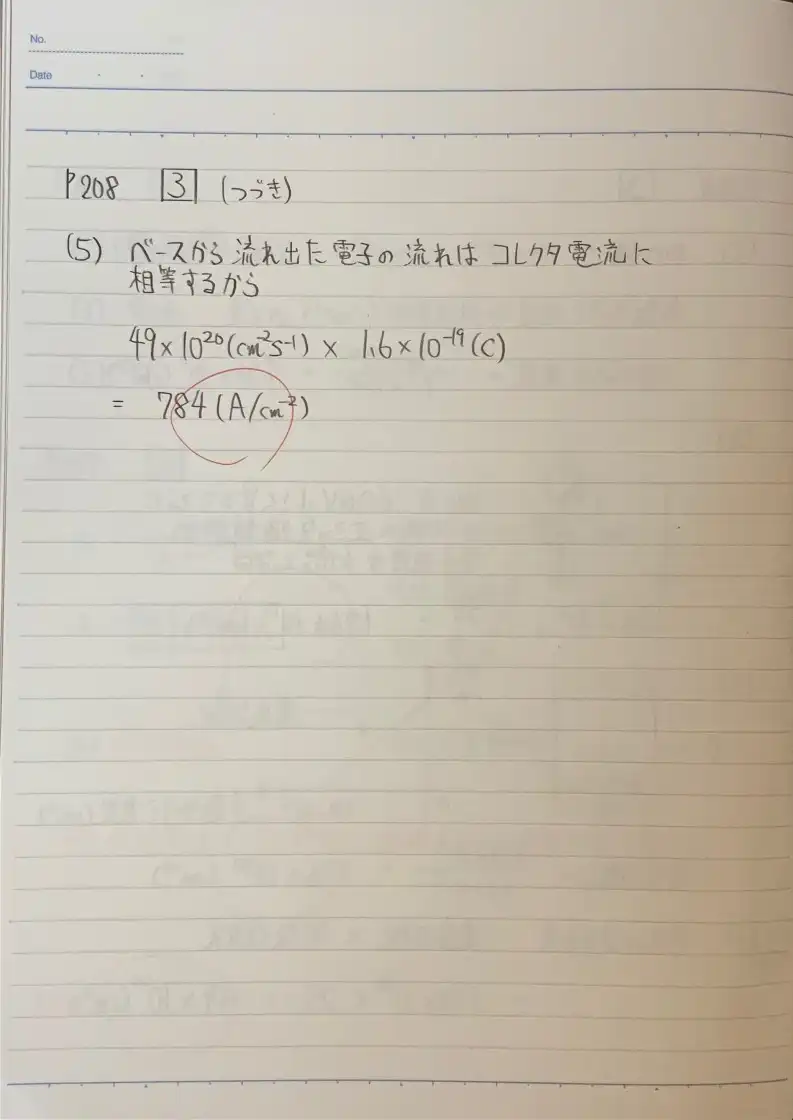 No.
Date
P208 3 (つづき)
(5) ベースから流れ出た電子の流れは コレクタ電流に
相等するから
49×10²⁰(cm²s⁻¹) × 1.6×10⁻¹⁹(C)
= 784(A/cm⁻²)